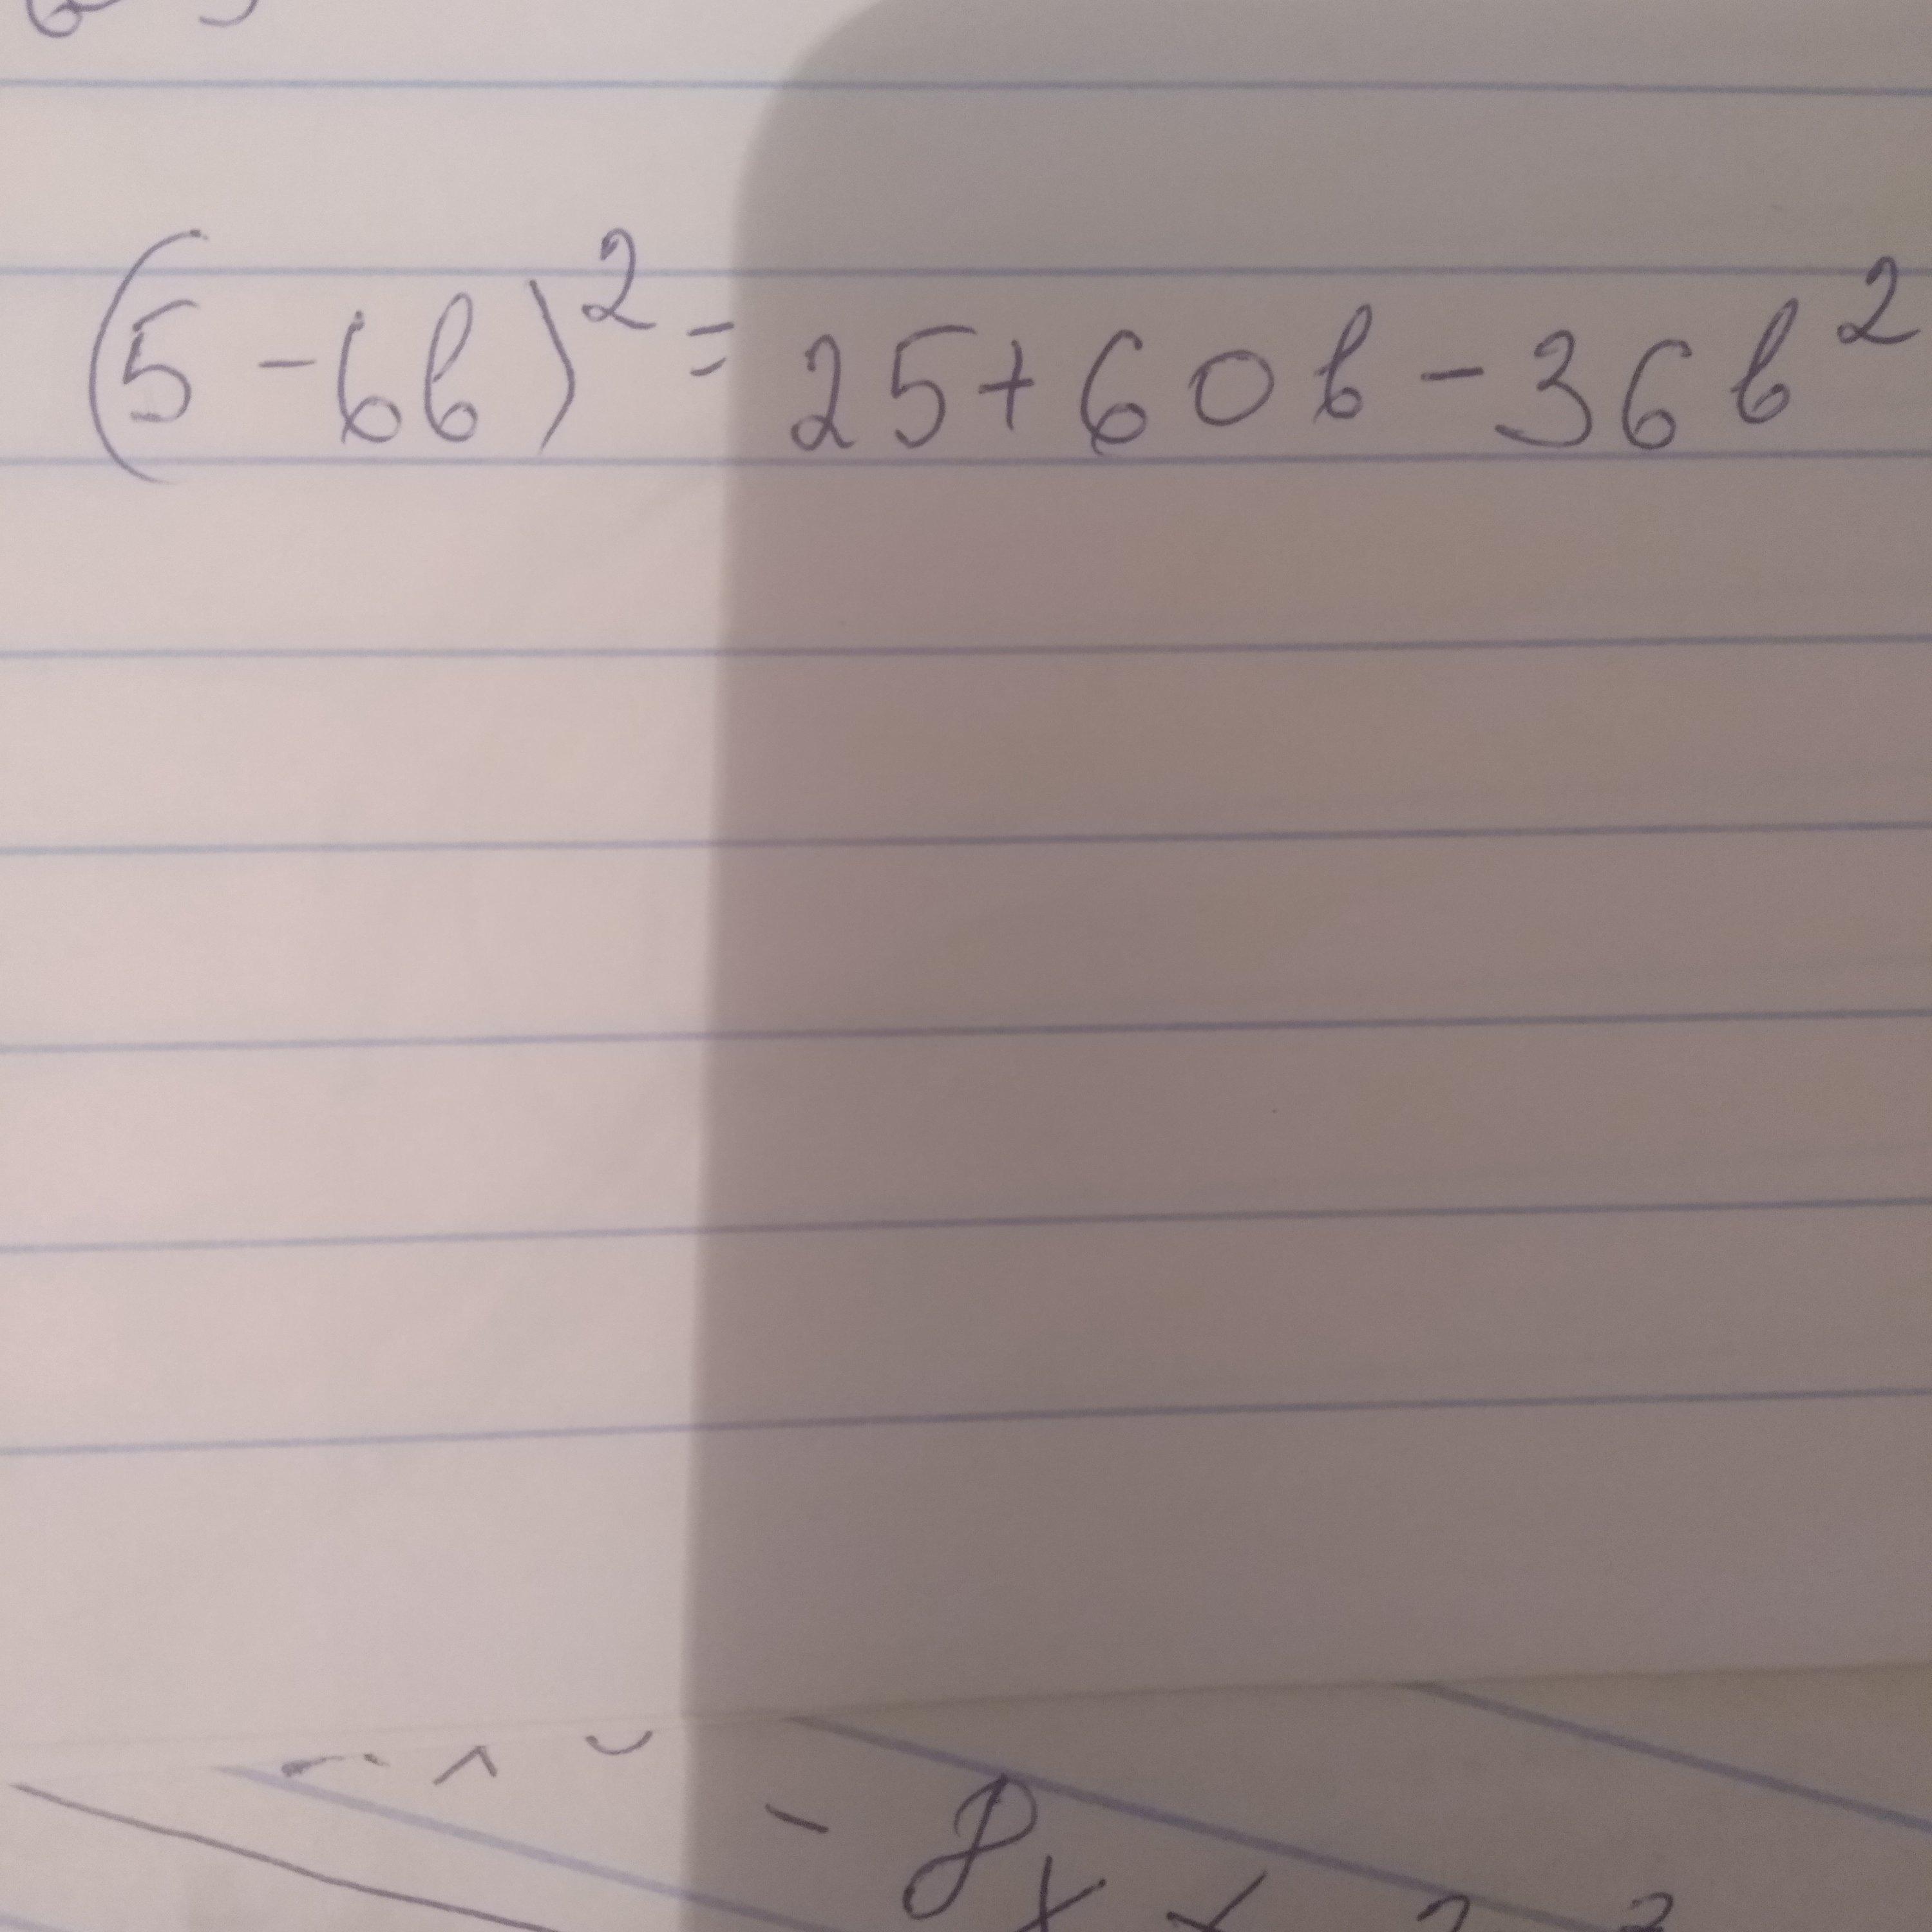 (5-6b)²=25+60b-36b²
- 8x +